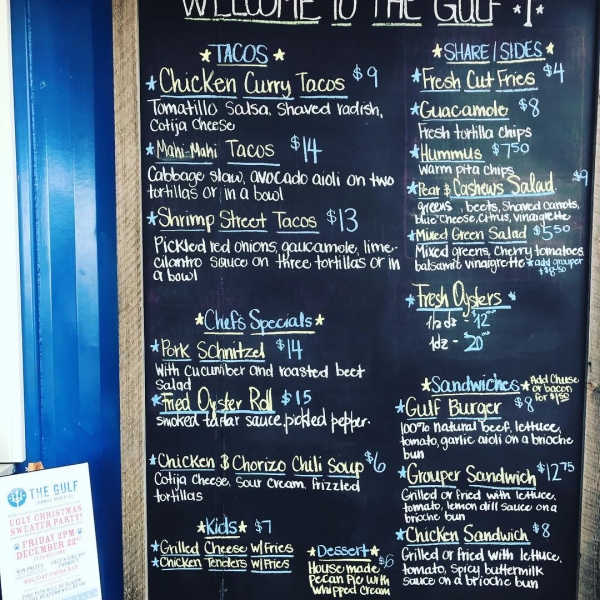 WELCOME TO THE GULF
TACOS
Chicken Curry Tacos $9
Tomatillo Salsa, Shaved radish,
Cotija Cheese
Mahi-Mahi Tacos $14
Cabbage slaw, avocado aioli on two
tortillas or in a bowl
Shrimp Street Tacos $13
Pickled red onions, gaucamole, lime-
cilantro sauce on three tortillas or in
a bowl
Chef's Specials
Pork Schnitzel $14
With Cucumber and roasted beet
Salad
Fried Oyster Roll $15
smoked tartar sauce, pickled pepper.
Chicken & Chorizo Chili Soup $6
Cotija Cheese, Sour Cream, frizzled
tortillas
Kids $7
Grilled Cheese w/Fries
Chicken Tenders w/Fries
Dessert $6
House made
pecan Pie with
whipped Cream
SHARE/SIDES
Fresh Cut Fries $4
Guacamole $8
Fresh tortilla chips
Hummus $7.50
warm pita chips
Pear & Cashews Salad $9
greens, beets, Shaved Carrots,
blue Cheese, Citrus, vinaigrette
Mixed Green Salad $5.50
Mixed greens, Cherry tomatoes
balsamic vinaigrette *add grouper
+$8.50
Fresh Oysters
1/2 dz - $12
1dz - $20
Sandwiches
Add Cheese
or bacon
for $1.50
Gulf Burger $8
100% natural beef, lettuce,
tomato, garlic aioli on a brioche
bun
Grouper Sandwich $12.75
Grilled or fried with lettuce,
tomato, lemon dill sauce on a
brioche bun
Chicken Sandwich $8
Grilled or fried with lettuce,
tomato, Spicy buttermilk
sauce on a brioche bun
THE GULF
ORANGE BEACH AL
UGLY CHRISTMAS
SWEATER PARTY!
FRIDAY 2PM
DECEMBER 22ND